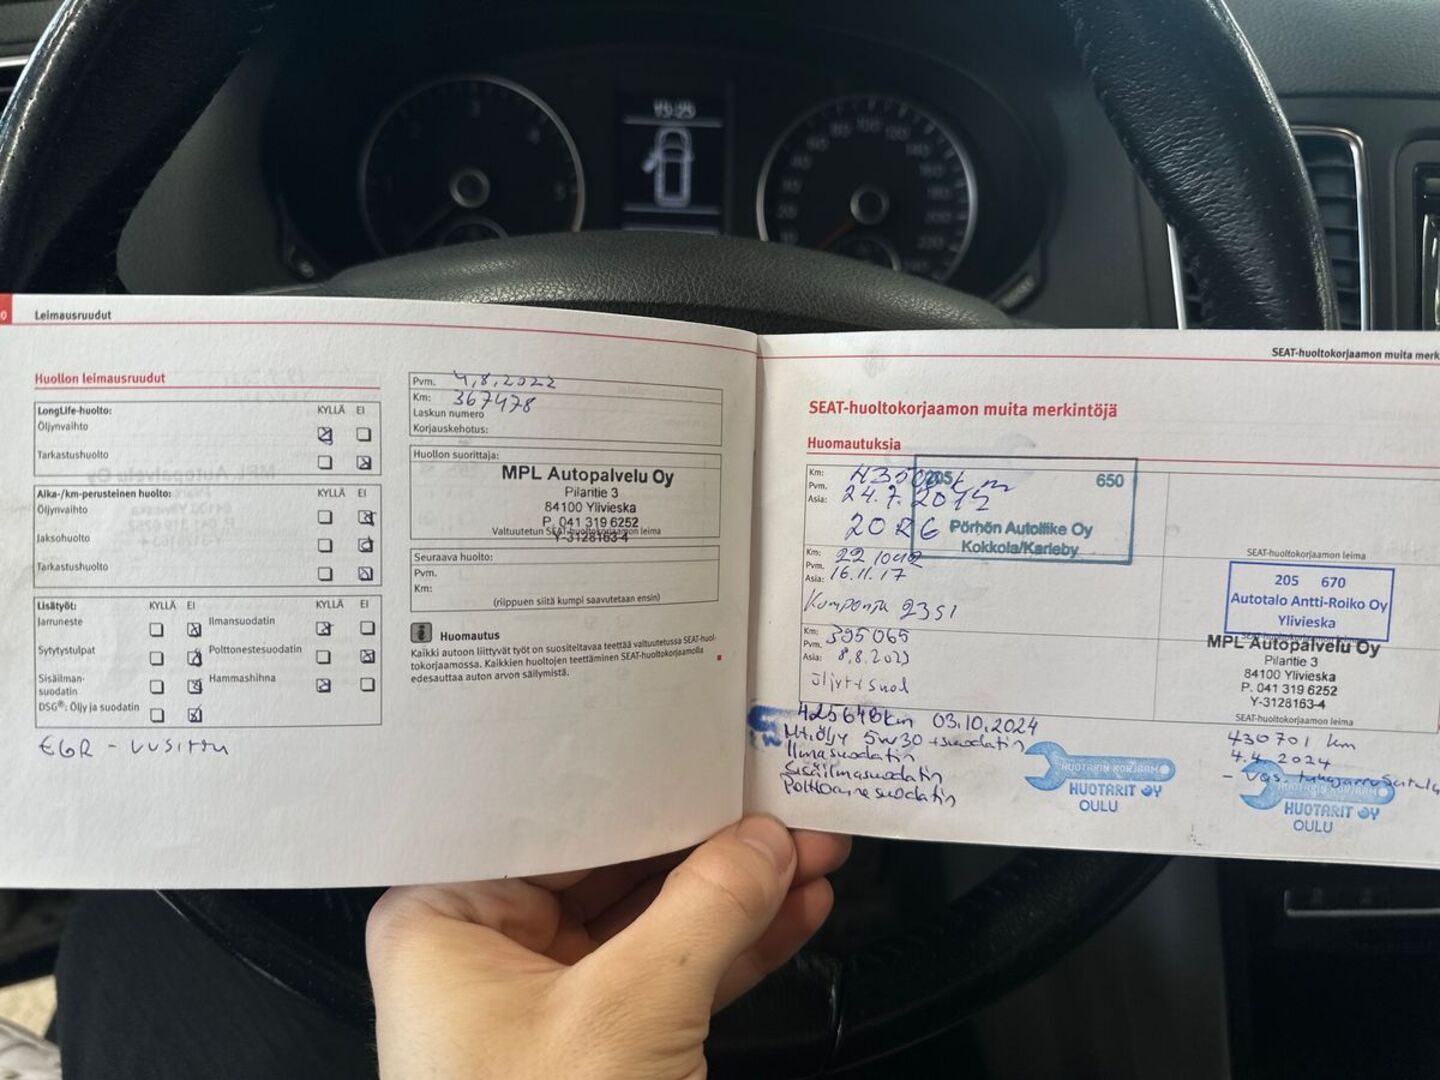 Leimausruudut
Huollon leimausruudut
LongLife-huolto: KYLLÄ EI
Öljynvaihto
Tarkastushuolto
Aika-/km-perusteinen huolto: KYLLÄ EI
Öljynvaihto
Jaksohuolto
Tarkastushuolto
Lisätyöt: KYLLÄ EI KYLLÄ EI
Jarruneste Ilmansuodatin
Sytytystulpat Polttonestesuodatin
Sisäilman-
suodatin Hammashihna
DSG®: Öljy ja suodatin
EGR - uusittu
Pvm. 4,8,2022
Km: 367478
Laskun numero
Korjauskehotus:
Huollon suorittaja:
MPL Autopalvelu Oy
Pilantie 3
84100 Ylivieska
P. 041 319 6252
Valtuutetun SEAT-huoltokorjaamon leima
Y-3128163-4
Seuraava huolto:
Pvm.
Km:
(riippuen siitä kumpi saavutetaan ensin)
Huomautus
Kaikki autoon liittyvät työt on suositeltavaa teettää valtuutetussa SEAT-huol-
tokorjaamossa. Kaikkien huoltojen teettäminen SEAT-huoltokorjaamolla
edesauttaa auton arvon säilymistä.
SEAT-huoltokorjaamon muita merk
SEAT-huoltokorjaamon muita merkintöjä
Huomautuksia
Km:
Pvm. 24.7.
Asia: 20R6
205 650
Pörhön Autoliike Oy
Kokkola/Karleby
SEAT-huoltokorjaamon leima
Km: 221042
Pvm. 16.11.17
Asia:
Kampanja 23S1
205 670
Autotalo Antti-Roiko Oy
Ylivieska
Km: 395065
Pvm. 8,8.2023
Asia:
öljyt+suod
MPL Autopalvelu Oy
Pilantie 3
84100 Ylivieska
P. 041 319 6252
Y-3128163-4
SEAT-huoltokorjaamon leima
425648km 03.10.2024
Mt.öljy 5w30 +suodatin
Ilmasuodatin
Sisäilmasuodatin
Polttoainesuodatin
HUOTARIN KORJAAMO
HUOTARIT OY
OULU
430701 km
4.4.2024
HUOTARIN KORJAAMO
HUOTARIT OY
OULU